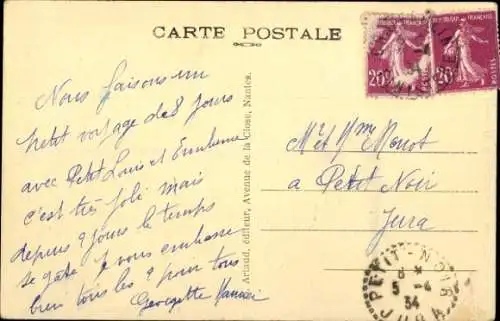 CARTE POSTALE
Nous faisons un
petit voyage de 8 jours
avec Petit Louis et
c'est très joli mais
depuis 2 jours le temps
se gate. Je vous embrasse
bien tous les 2 pour tous
Georgette
Artaud, éditeur, Avenue de la Close, Nantes.
REPUBLIQUE FRANÇAISE
20c
POSTES
REPUBLIQUE FRANÇAISE
20c
POSTES
Mr et Mme
a Petit Noir
Jura
PETIT-NOIR
8 *
5 -4
34
JURA